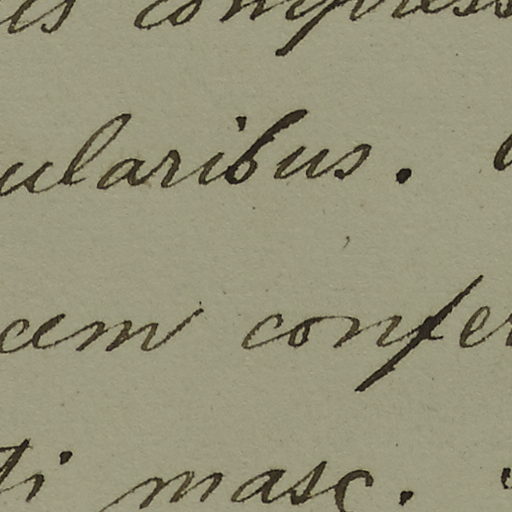 is compress
ularibus.
cem confer
ti masc.